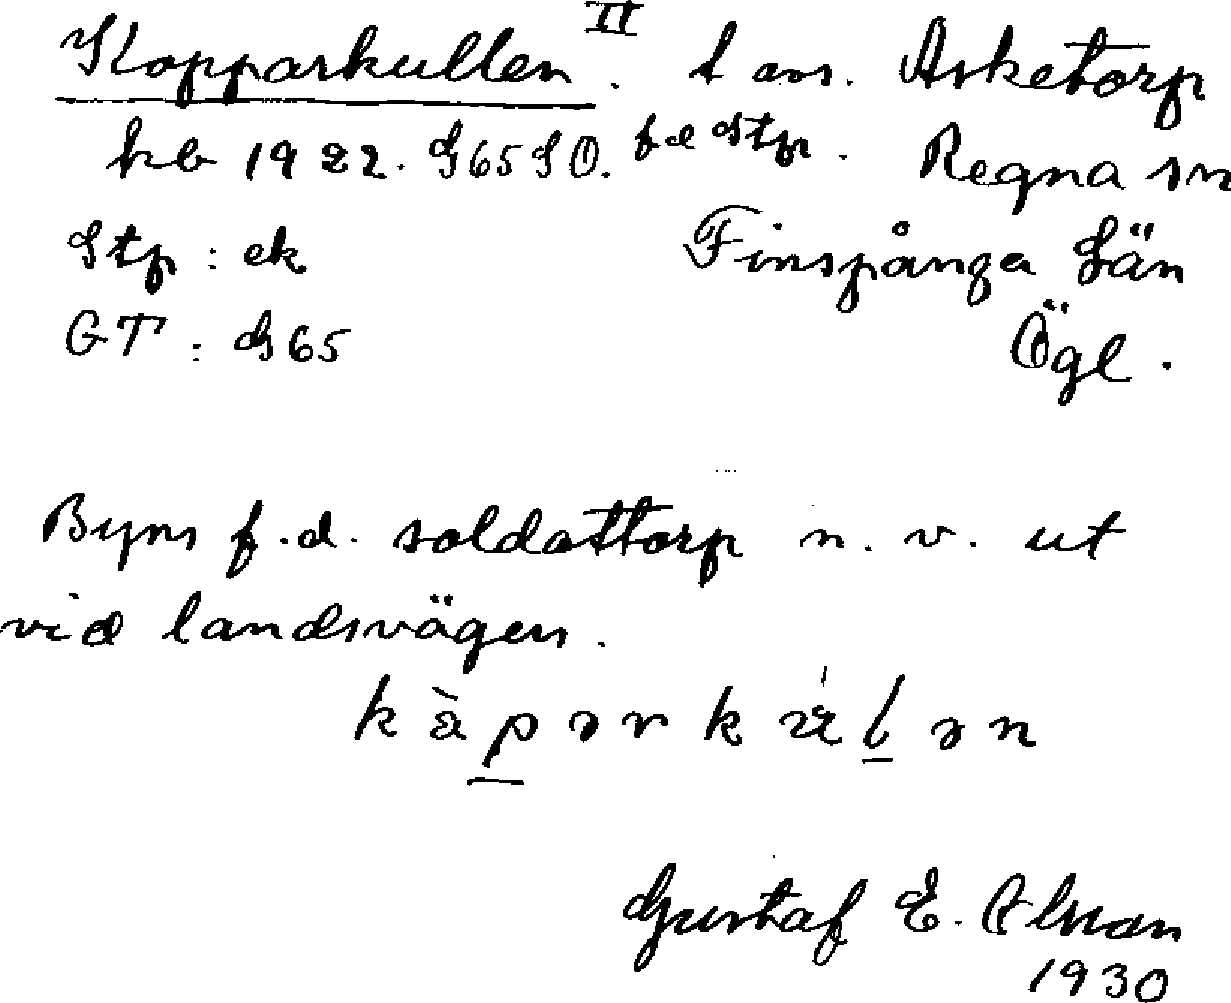 Kopparkullen II. t avs. Asketorp
kb 1922. G65SO. f d Stp. Regna sn
Stp: ek Finspånga Län
GT: G65 Ögl.
Byns f.d. soldattorp n. v. ut
vid landsvägen.
Gustaf E. Olsson
1930